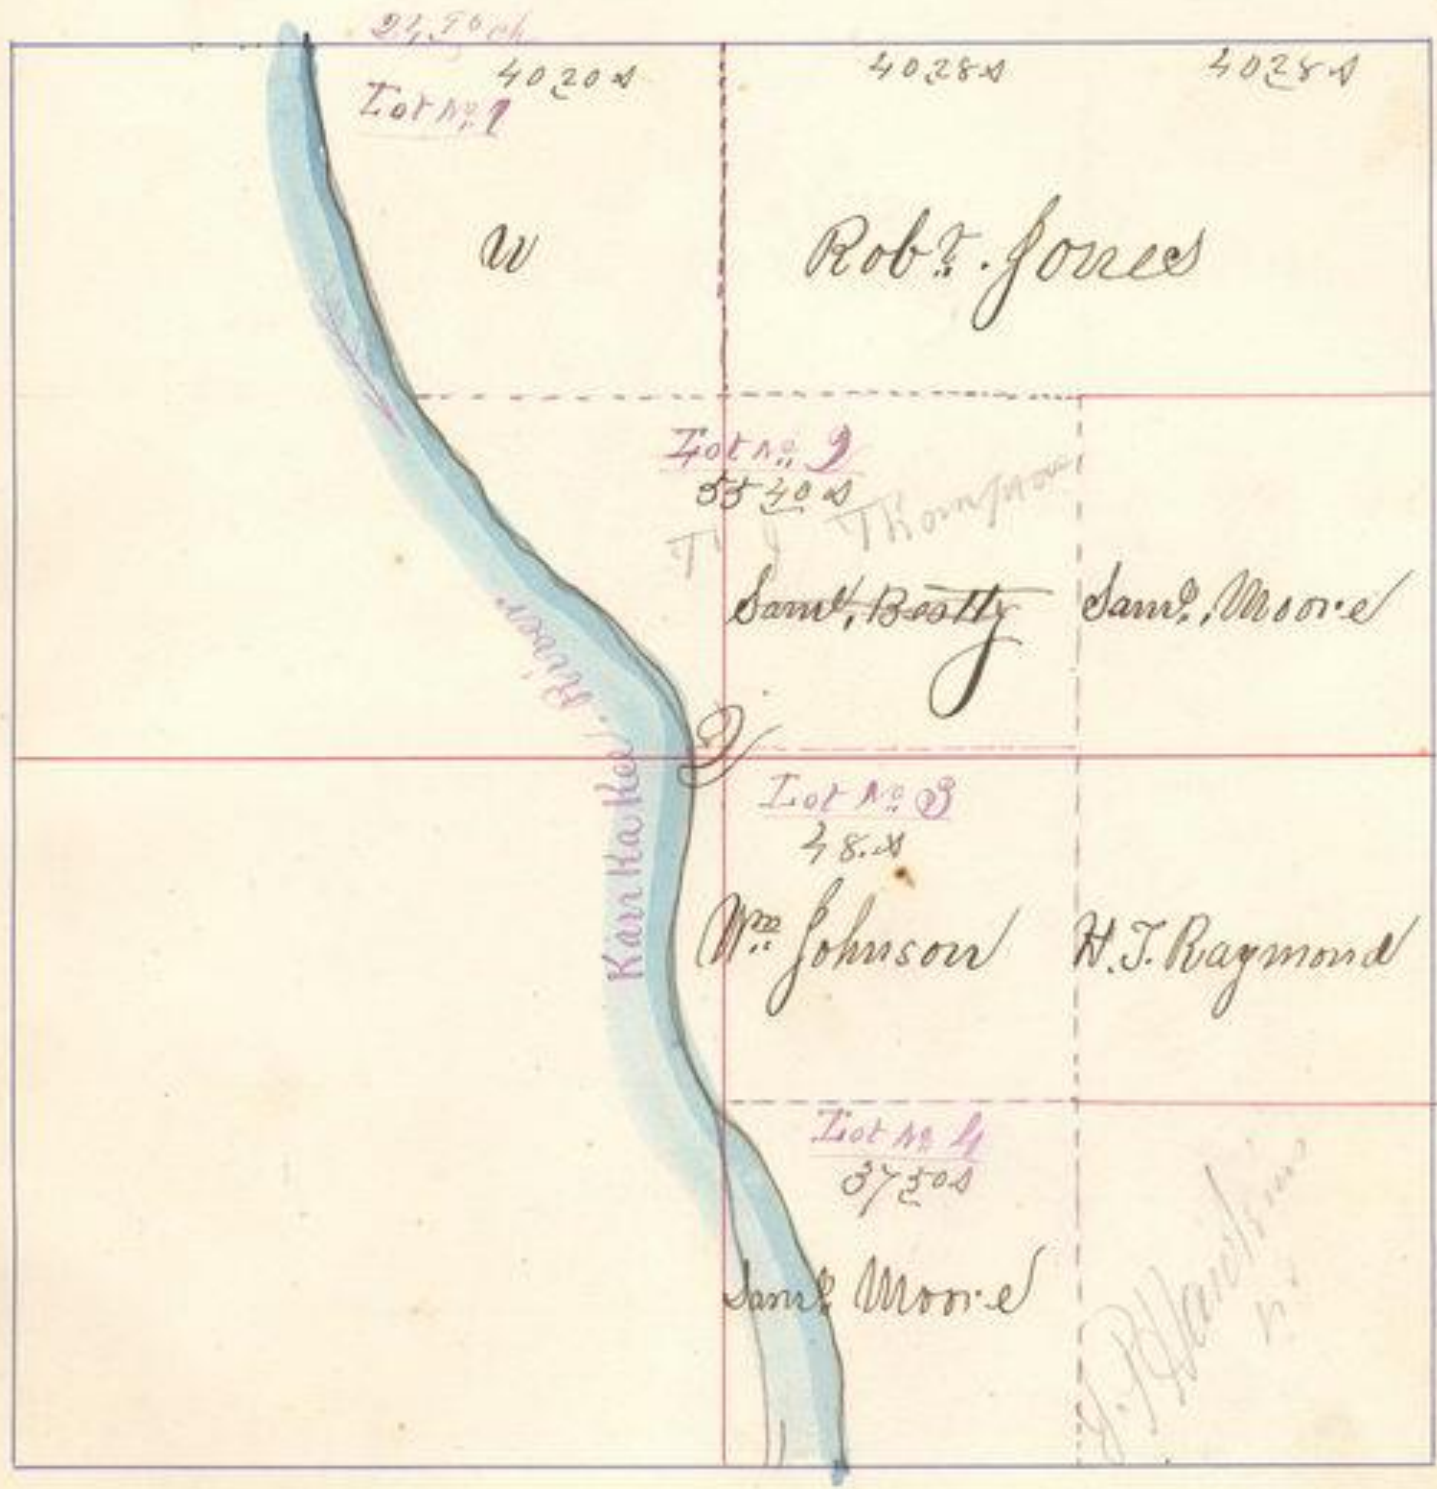 24,50 ch
4020 s
4028 s
4028 s
Lot No. 1
W
Robt. Jones
Lot No. 2
55 40 s
T J Thompson
Saml. Beatty
Saml. Moore
River
KanKaKee
2
Lot No. 3
48. s
Wm Johnson
H. T. Raymond
Lot No 4
37 50 s
Saml. Moore
J. P. Hawkins